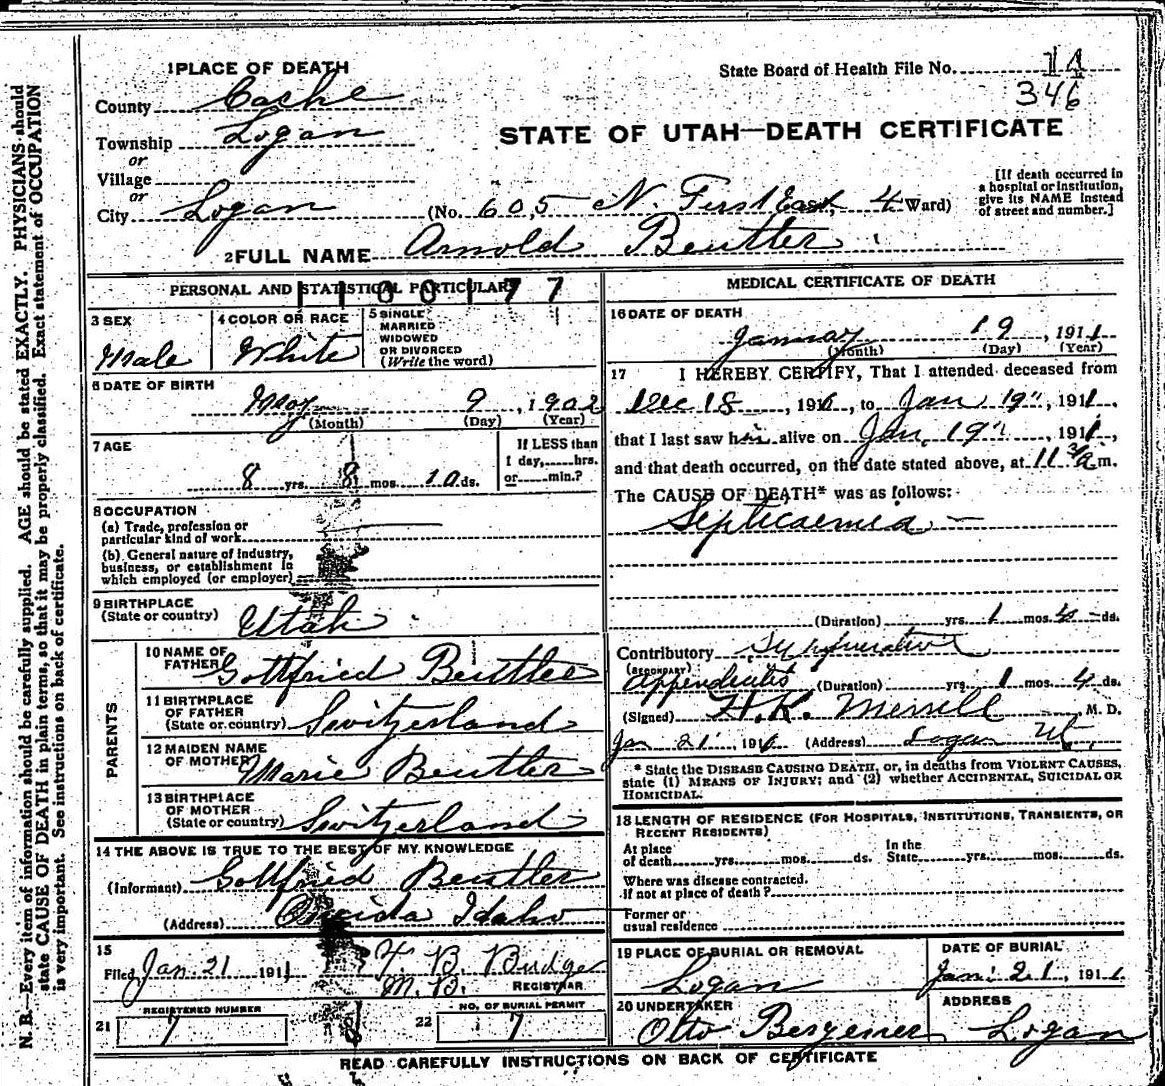 1 PLACE OF DEATH
County Cache
Township Logan
or
Village
or
City Logan (No. 605 N. First East, 4 Ward)
State Board of Health File No. 14
346
STATE OF UTAH—DEATH CERTIFICATE
[If death occurred in
a hospital or institution,
give its NAME instead
of street and number.]
2 FULL NAME Arnold Beutler
PERSONAL AND STATISTICAL PARTICULARS
1100177
3 SEX
Male
4 COLOR OR RACE
White
5 SINGLE
MARRIED
WIDOWED
OR DIVORCED
(Write the word)
6 DATE OF BIRTH
May 9, 1902
(Month) (Day) (Year)
7 AGE
8 yrs. 8 mos. 10 ds.
If LESS than
1 day, hrs.
or min.?
8 OCCUPATION
(a) Trade, profession or
particular kind of work
(b) General nature of industry,
business, or establishment in
which employed (or employer)
9 BIRTHPLACE
(State or country) Utah
PARENTS
10 NAME OF
FATHER Gottfried Beutler
11 BIRTHPLACE
OF FATHER
(State or country) Switzerland
12 MAIDEN NAME
OF MOTHER Marie Beutler
13 BIRTHPLACE
OF MOTHER
(State or country) Switzerland
14 THE ABOVE IS TRUE TO THE BEST OF MY KNOWLEDGE
(Informant) Gottfried Beutler
(Address) Oneida Idaho
15
Filed Jan. 21 1911 B. Budge
REGISTRAR
21 REGISTERED NUMBER
7
22 NO. OF BURIAL PERMIT
7
MEDICAL CERTIFICATE OF DEATH
16 DATE OF DEATH
January 19, 1911
(Month) (Day) (Year)
17 I HEREBY CERTIFY, That I attended deceased from
Dec 18, 191, to Jan 19", 1911,
that I last saw him alive on Jan. 19", 1911,
and that death occurred, on the date stated above, at 11 a m.
The CAUSE OF DEATH* was as follows:
Septicaemia —
(Duration) yrs. 1 mos. 4 ds.
Contributory Suppurative
(SECONDARY)
appendicitis (Duration) yrs. 1 mos. 4 ds.
(Signed) H. K. Merrill M. D.
Jan 21, 191 (Address) Logan Ut.
* State the DISEASE CAUSING DEATH, or, in deaths from VIOLENT CAUSES,
state (1) MEANS OF INJURY; and (2) whether ACCIDENTAL, SUICIDAL OR
HOMICIDAL.
18 LENGTH OF RESIDENCE (FOR HOSPITALS, INSTITUTIONS, TRANSIENTS, OR
RECENT RESIDENTS)
At place
of death yrs. mos. ds.
In the
State yrs. mos. ds.
Where was disease contracted,
if not at place of death?
Former or
usual residence
19 PLACE OF BURIAL OR REMOVAL
Logan
DATE OF BURIAL
Jan. 21, 1911
20 UNDERTAKER
Otto
ADDRESS
Logan
READ CAREFULLY INSTRUCTIONS ON BACK OF CERTIFICATE
N. B.—Every item of information should be carefully supplied. AGE should be stated EXACTLY. PHYSICIANS should
state CAUSE OF DEATH in plain terms, so that it may be properly classified. Exact statement of OCCUPATION
is very important. See instructions on back of certificate.